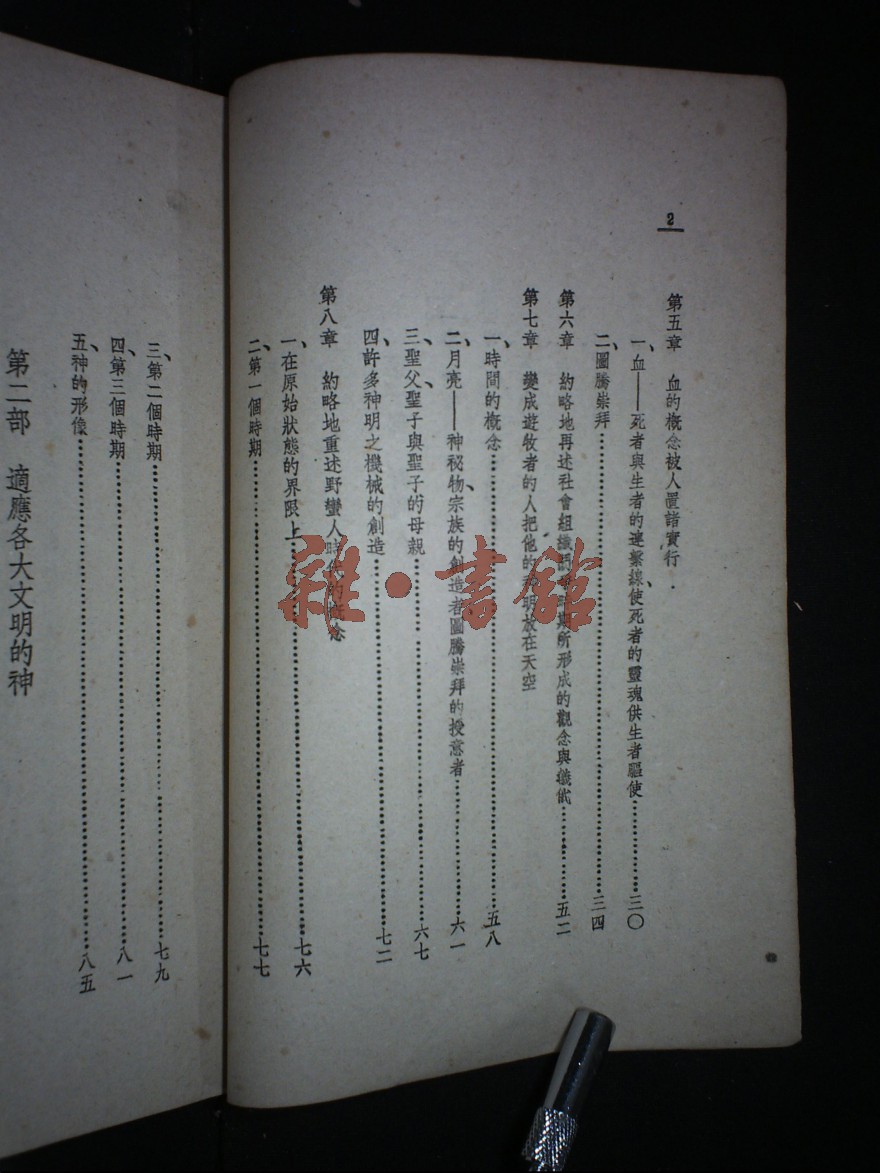 2
第五章　血的概念被人置諸實行
一、血——死者與生者的連繫線、使死者的靈魂供生者驅使……三〇
二、圖騰崇拜……三四
第六章　約略地再述社會組織時期所形成的觀念與儀式……五二
第七章　變成遊牧者的人把他的神明放在天空
一、時間的概念……五八
二、月亮——神祕物、宗族的創造者圖騰崇拜的授意者……六一
三、聖父、聖子與聖子的母親……六七
四、許多神明之機械的創造……七二
第八章　約略地重述野蠻人時代的概念
一、在原始狀態的界限上……七六
二、第一個時期……七七
三、第二個時期……七九
四、第三個時期……八一
五、神的形像……八五
第二部　適應各大文明的神
雜·書館